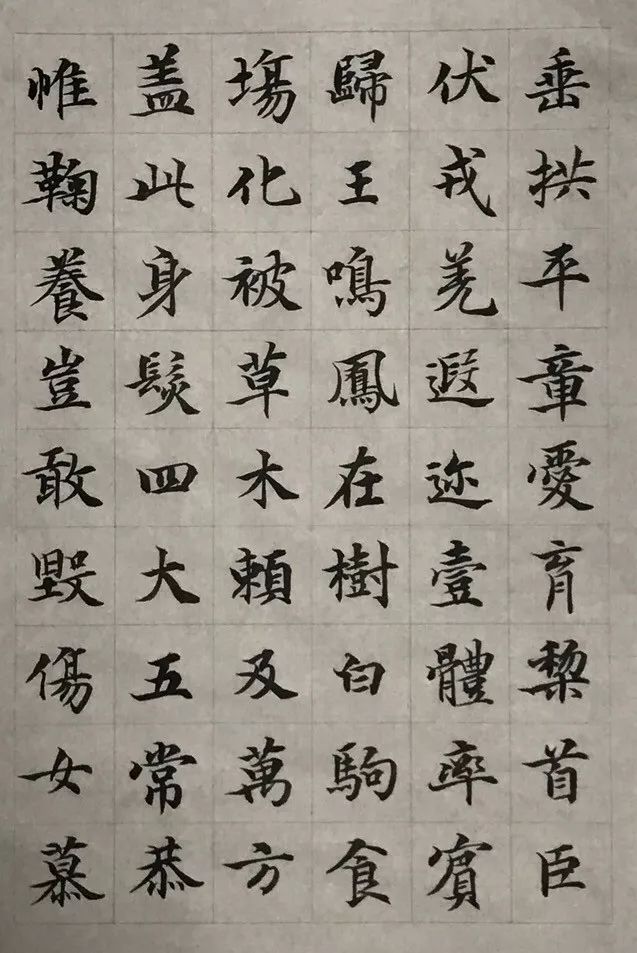 垂拱平章愛育黎首臣
伏戎羌遐迩壹體率賓
歸王鳴鳳在樹白駒食
場化被草木賴及萬方
盖此身髮四大五常恭
惟鞠養豈敢毀傷女慕